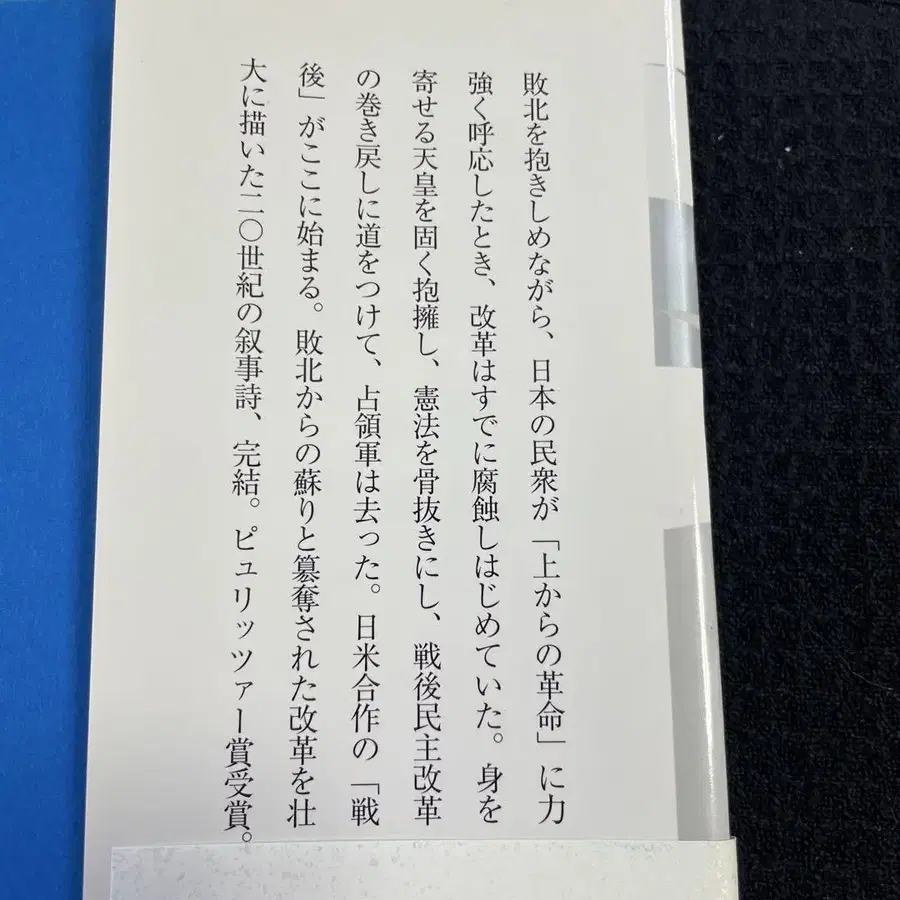 敗北を抱きしめながら、日本の民衆が「上からの革命」に力
強く呼応したとき、改革はすでに腐蝕しはじめていた。身を
寄せる天皇を固く抱擁し、憲法を骨抜きにし、戦後民主改革
の巻き戻しに道をつけて、占領軍は去った。日米合作の「戦
後」がここに始まる。敗北からの蘇りと簒奪された改革を壮
大に描いた二〇世紀の叙事詩、完結。ピュリッツァー賞受賞。